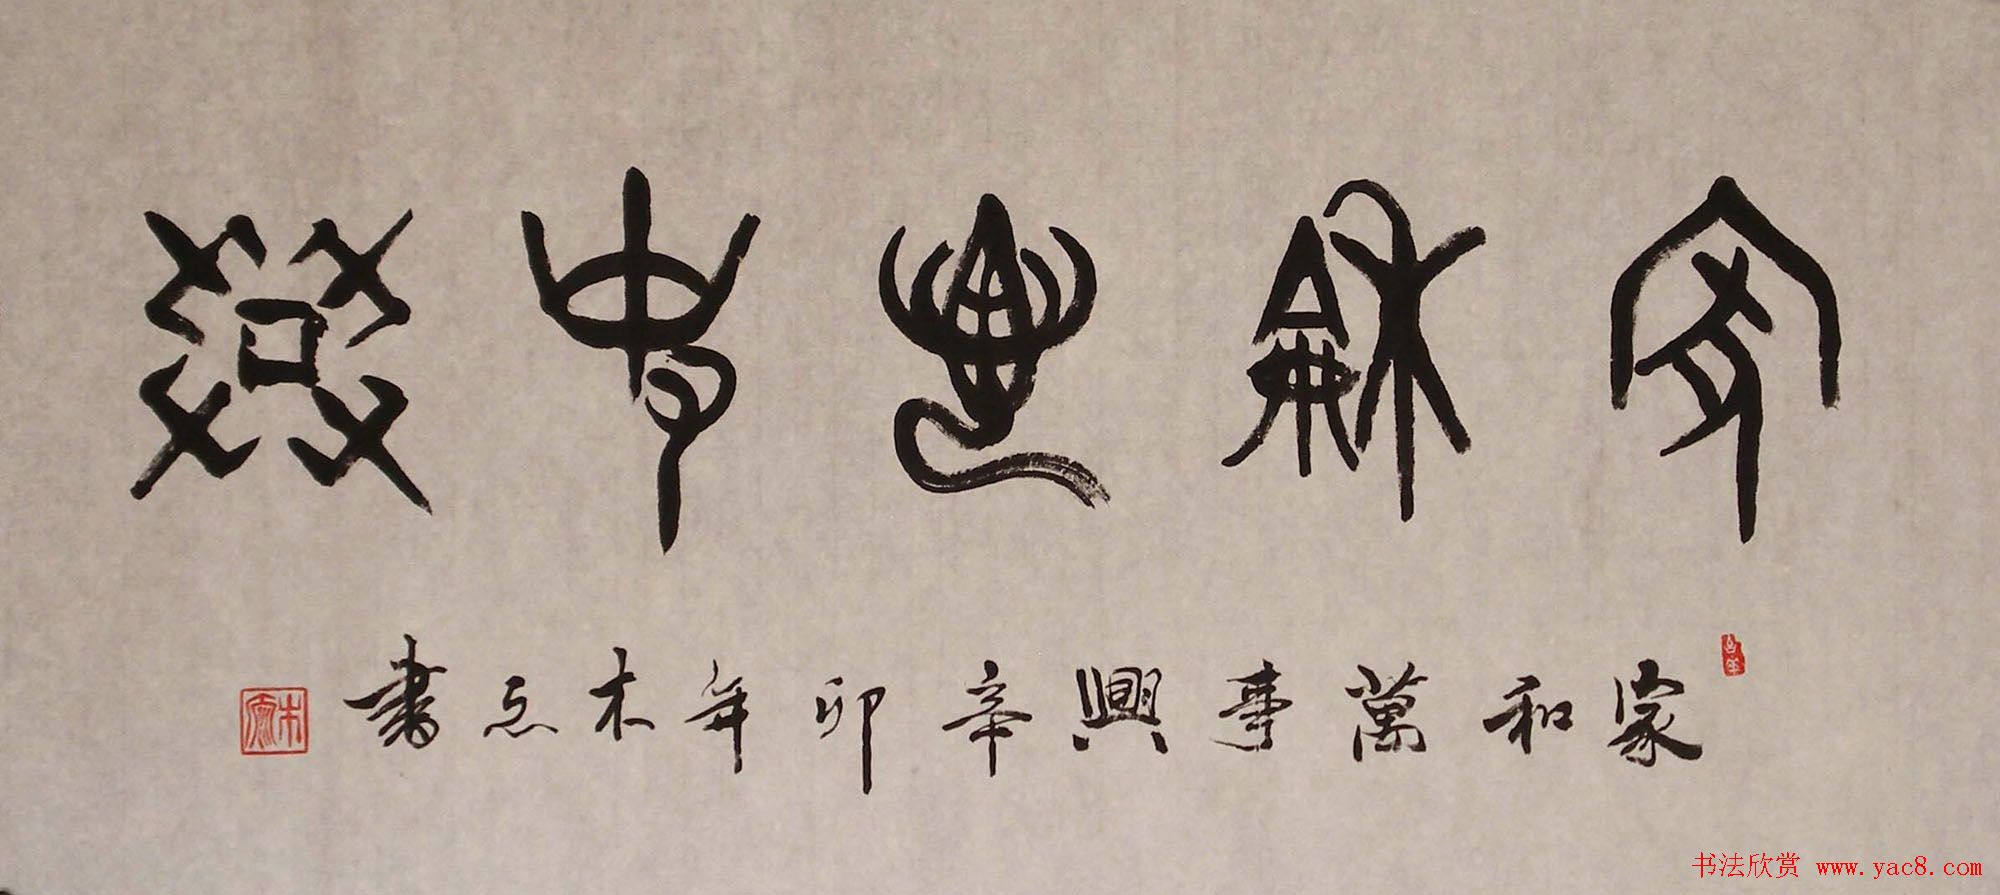 家和萬事興
家和萬事興辛卯年木石書
书法欣赏 www.yac8.com